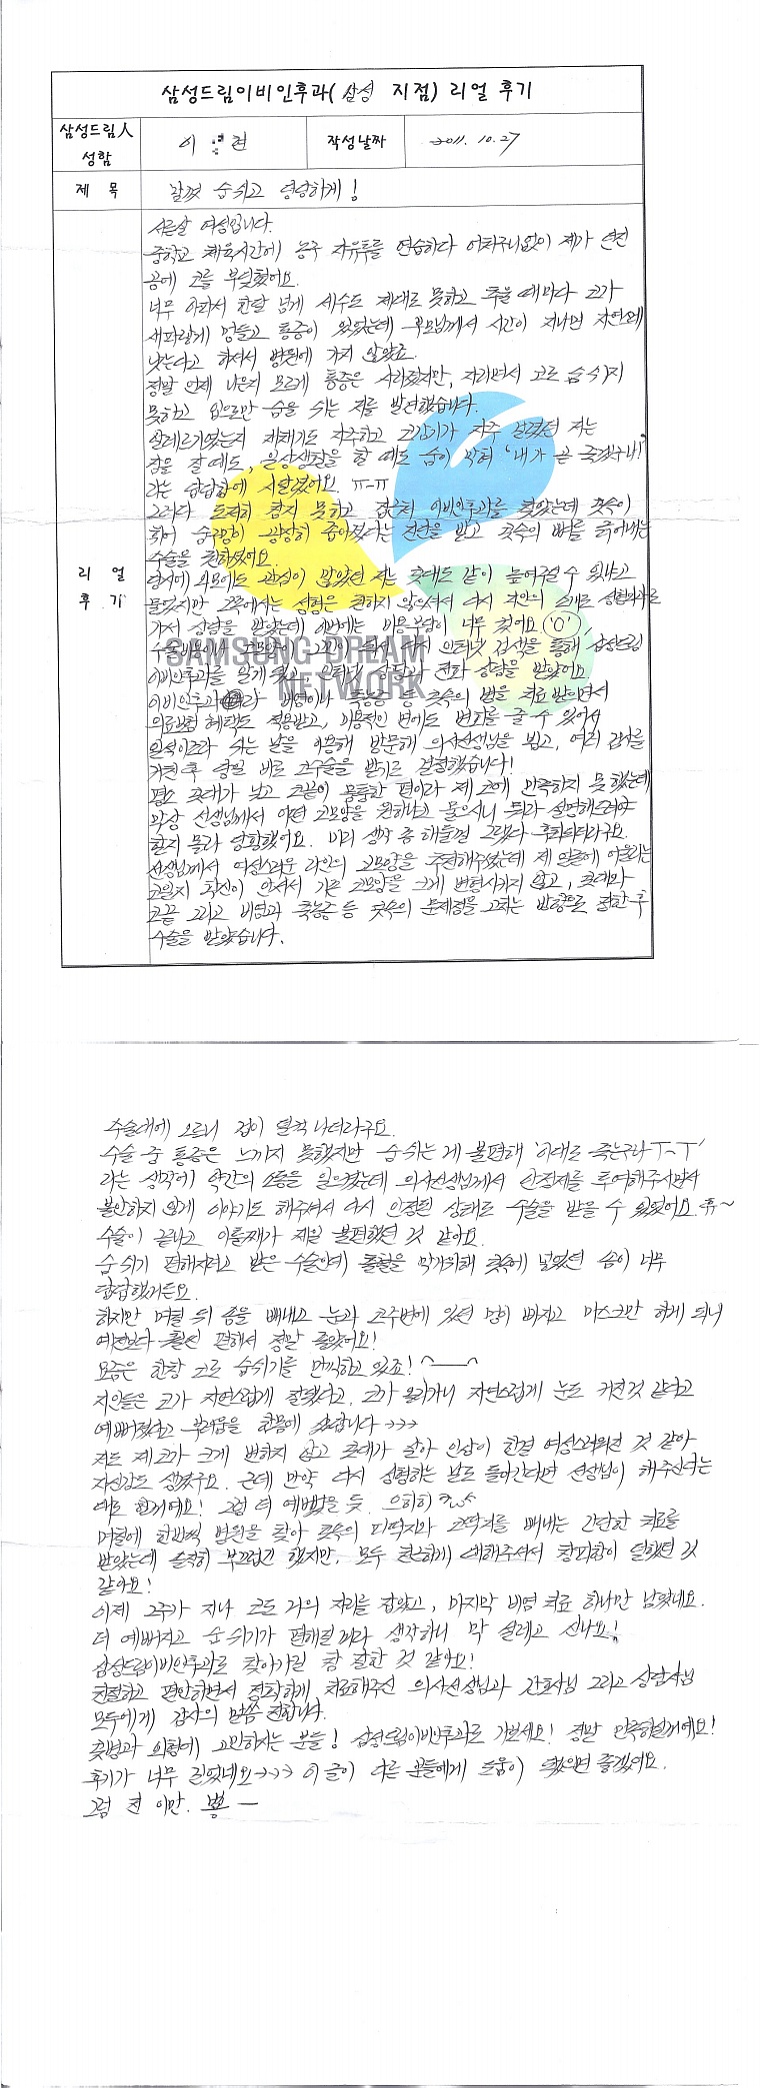 삼성드림이비인후과(삼성 지점) 리얼 후기
삼성드림人 성함
이 현
작성날짜
2011. 10. 27
제 목
맘껏 숨쉬고 당당하게!
리 얼 후 기
서른살 여성입니다.
중학교 체육시간에 농구 자유투를 연습하다 어처구니없이 제가 던진
공에 코를 부딪혔어요.
너무 아파서 한달 넘게 세수도 제대로 못하고 추울 때마다 코가
새파랗게 멍들고 통증이 있었는데 부모님께서 시간이 지나면 자연스레
낫는다고 하셔서 병원에 가지 않았죠.
정말 언제 나은지 모르게 통증은 사라졌지만, 자라면서 코로 숨쉬지
못하고 입으로만 숨을 쉬는 저를 발견했습니다.
알레르기였는지 재채기도 자주하고 코감기가 자주 걸렸던 저는
잠을 잘 때도, 일상생활을 할 때도 숨이 막혀 '내가 곧 죽겠구나!'
라는 답답함에 시달렸어요. ㅠ-ㅠ
그러다 도저히 참지 못하고 집근처 이비인후과를 찾았는데 콧속이
휘어 숨구멍이 굉장히 좁아졌다는 진단을 받고 콧속의 뼈를 긁어내는
수술을 권하셨어요.
당시에 외모에도 관심이 많았던 저는 콧대도 같이 높여주실 수 있냐고
물었지만 그쪽에서는 성형은 권하지 않으셔서 다시 지인의 소개로 성형외과로
가서 상담을 받았는데 이번에는 비용부담이 너무 컸어요('0'),
SAMSUNG DREAM
NETWORK
이비인후과를 알게 됐고, 인터넷 상담과 전화 상담을 받았어요.
이비인후과라 비염이나 축농증 등 콧속의 병을 치료 받으면서
의료보험 혜택도 적용받고, 미용적인 면에도 변화를 줄 수 있어서
일석이조라 쉬는 날을 이용해 방문해 의사선생님을 뵙고, 여러 검사를
거친 후 당일 바로 코수술을 받기로 결정했습니다!
평소 콧대가 낮고 코끝이 뭉툭한 편이라 제 코에 만족하지 못했는데
막상 선생님께서 어떤 코모양을 원하냐고 물으시니 뭐라 설명해드려야
할지 몰라 당황했어요. 미리 생각 좀 해둘껄 그랬다 후회되더라구요.
선생님께서 여성스러운 라인의 코모양을 추천해주셨는데 제 얼굴에 어울리는
코일지 확신이 안서서 기존 코모양을 크게 변형시키지 않고, 콧대와
코끝 그리고 비염과 축농증 등 콧속의 문제점을 고치는 방향으로 정한 후
수술을 받았습니다.
수술대에 오르니 겁이 덜컥 나더라구요.
수술 중 통증은 느끼지 못했지만 숨 쉬는 게 불편해 '이대로 죽는구나 ㅜ-ㅜ'
라는 생각에 약간의 소동을 일으켰는데 의사선생님께서 안정제를 투여해주시면서
불안하지 않게 이야기도 해주셔서 다시 안정된 상태로 수술을 받을 수 있었어요. 휴~
수술이 끝나고 이틀째가 제일 불편했던 것 같아요.
숨 쉬기 편해지려고 받은 수술인데 출혈을 막기위해 콧속에 넣었던 솜이 너무
답답했거든요.
하지만 며칠 뒤 솜을 빼내고 눈과 코주변에 있던 멍이 빠지고 마스크만 하게 되니
예전보다 훨씬 편해서 정말 좋았어요!
요즘은 한창 코로 숨쉬기를 만끽하고 있죠! ^____^
지인들은 코가 자연스럽게 잘됐다고, 코가 올라가니 자연스럽게 눈도 커진것 같다고
예뻐졌다고 부러움을 한몸에 샀답니다 >>>
저도 제 코가 크게 변하지 않고 콧대가 살아 인상이 한결 여성스러워진 것 같아
자신감도 생겼구요. 근데 만약 다시 성형하는 날로 돌아간다면 선생님이 해주신다는
대로 할거예요! 그럼 더 예뻤을 듯. 으히히
며칠에 한번씩 병원을 찾아 콧속의 피딱지와 코딱지를 빼내는 간단한 치료를
받았는데 솔직히 부끄럽긴 했지만, 모두 친근하게 대해주셔서 창피함이 덜했던 것
같아요!
이제 2주가 지나 코도 거의 자리를 잡았고, 마지막 비염 치료 하나만 남았네요.
더 예뻐지고 숨 쉬기가 편해질거라 생각하니 막 설레고 신나요!
삼성드림이비인후과로 찾아가길 참 잘한 것 같아요!
친절하고 편안하면서 정확하게 치료해주신 의사선생님과 간호사님 그리고 상담사님
모두에게 감사의 말씀 전합니다.
콧병과 외형에 고민하시는 분들! 삼성드림이비인후과로 가보세요! 정말 만족하실거예요!
후기가 너무 길었네요>>> 이 글이 다른 분들에게 도움이 됐으면 좋겠어요.
그럼 전 이만. 뿅 —